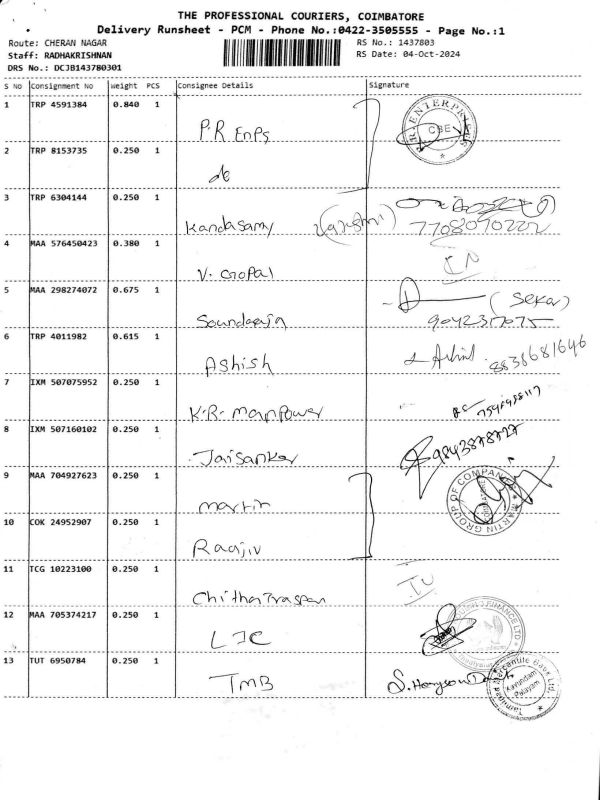 THE PROFESSIONAL COURIERS, COIMBATORE
Delivery Runsheet - PCM - Phone No.:0422-3505555 - Page No.:1
Route: CHERAN NAGAR
RS No.: 1437803
Staff: RADHAKRISHNAN
RS Date: 04-Oct-2024
DRS No.: DCJB143780301
S No Consignment No Weight PCS Consignee Details Signature
1 TRP 4591384 0.840 1
P.R Enps
P.R. ENTERPRISES CBE
2 TRP 8153735 0.250 1
do
3 TRP 6304144 0.250 1
Kandasamy
7708090222
4 MAA 576450423 0.380 1
V. Gopal
5 MAA 298274072 0.675 1
Soundaraja (Sekar)
9042317075
6 TRP 4011982 0.615 1
Ashish 8838681646
7 IXM 507075952 0.250 1
K.R. manpower
8 IXM 507160102 0.250 1
Jaisanker 9843878727
9 MAA 704927623 0.250 1
martin
MARTIN GROUP OF COMPANIES
10 COK 24952907 0.250 1
Raajiv
11 TCG 10223100 0.250 1
12 MAA 705374217 0.250 1
LIC
FINANCE LTD
13 TUT 6950784 0.250 1
TMB
Tamilnad Mercantile Bank Ltd. Kavundam Palayam